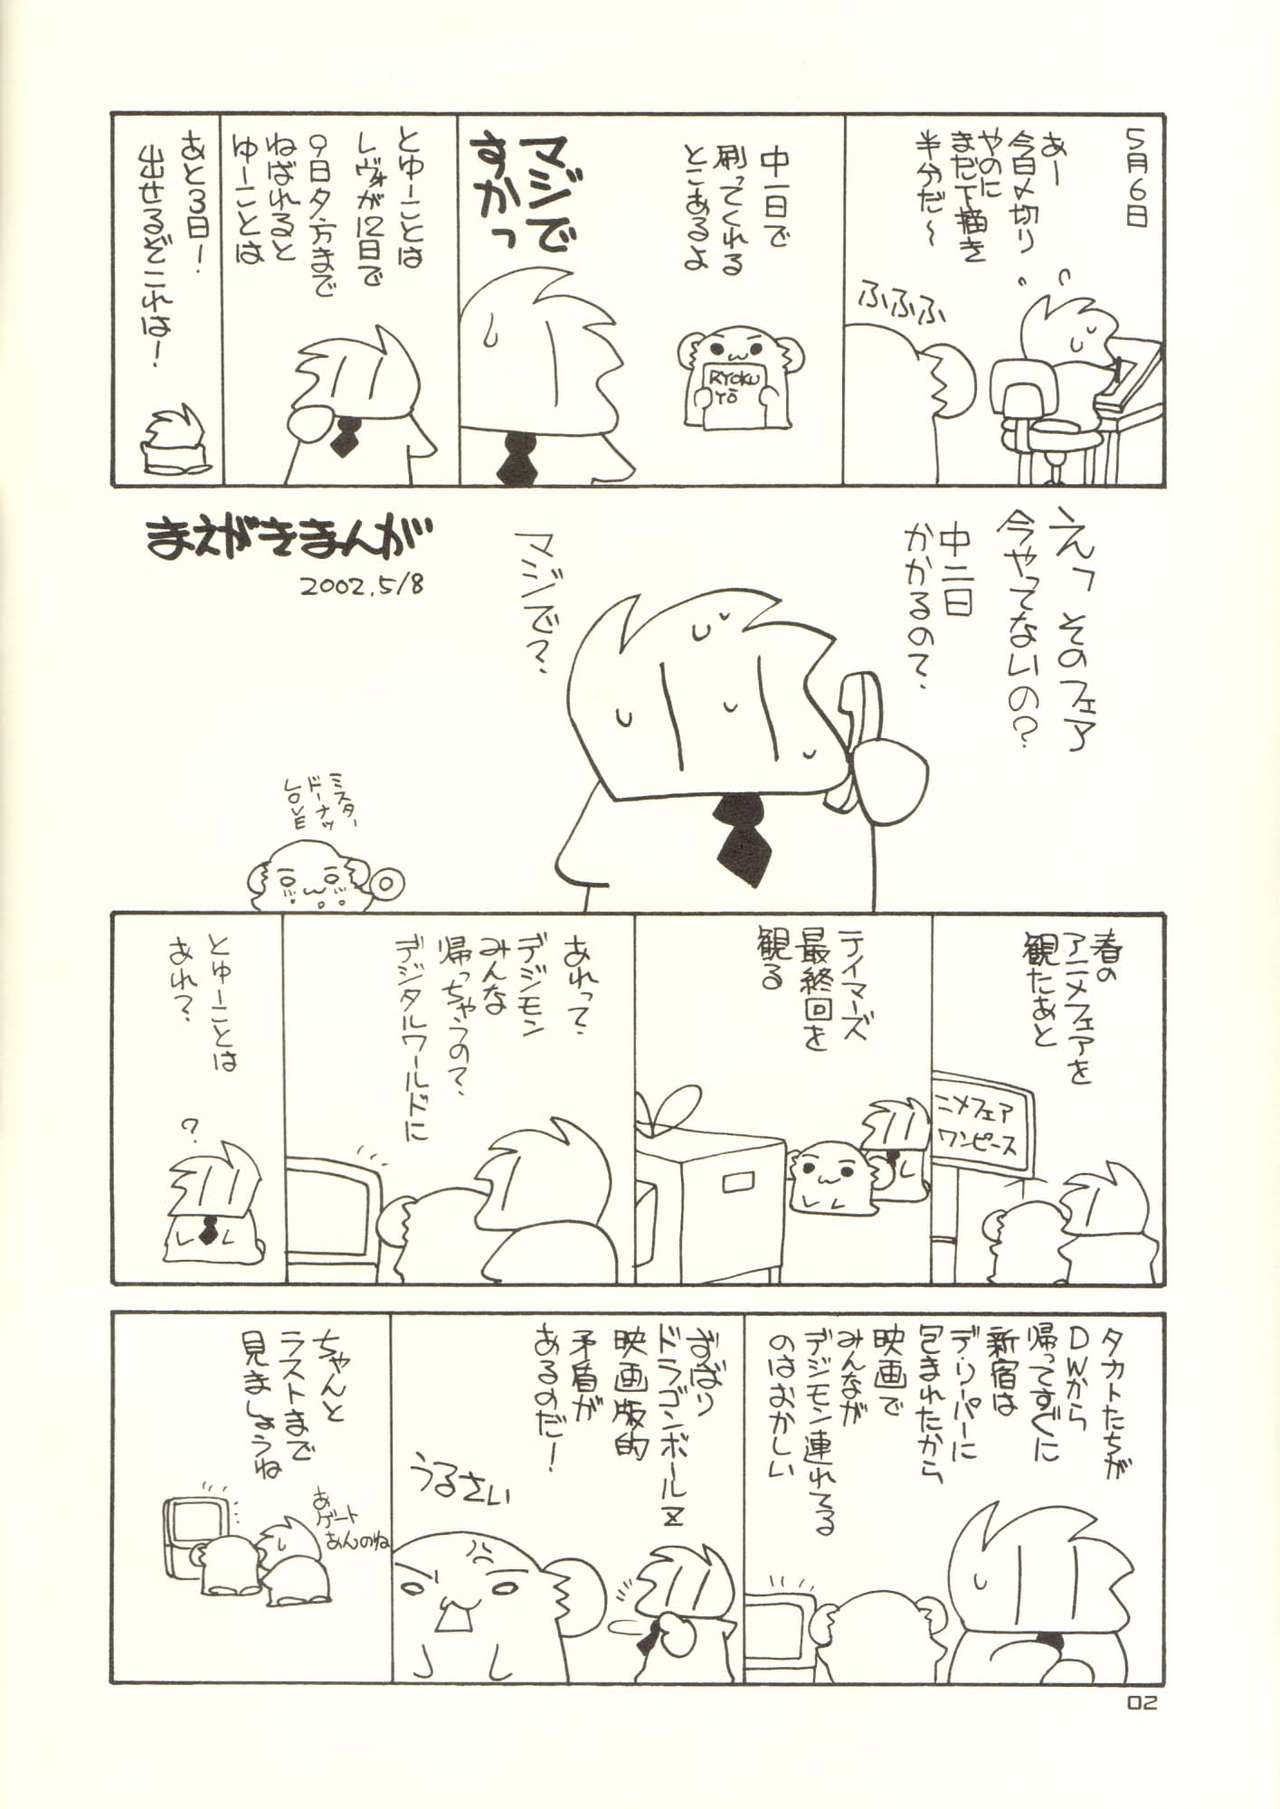 5月6日
あー
今日〆切り
やのに
まだ下描き
半分だ〜
ふふふ
中一日で
刷ってくれる
とこあるよ
RYOKU
YŌ
マジで
すかっ
とゆーことは
レヴォが12日で
9日夕方まで
ねばれると
ゆーことは
あと3日!
出せるぞこれは!
えっ そのフェア
今やってないの?
中二日
かかるの?
マジで?
まえがきまんが
2002.5/8
ミスター
ドーナッツ
LOVE
春の
アニメフェアを
観たあと
ニメフェア
ワンピース
テイマーズ
最終回を
観る
あれって?
デジモン
みんな
帰っちゃうの?
デジタルワールドに
とゆーことは
あれ?
?
タカトたちが
DWから
帰ってすぐに
新宿は
デ・リーパーに
包まれたから
映画で
みんなが
デジモン連れてる
のはおかしい
ずばり
ドラゴンボールZ
映画版的
矛盾が
あるのだ!
うるさい
ちゃんと
ラストまで
見ましょうね
あ
ゲート
あんのね
02